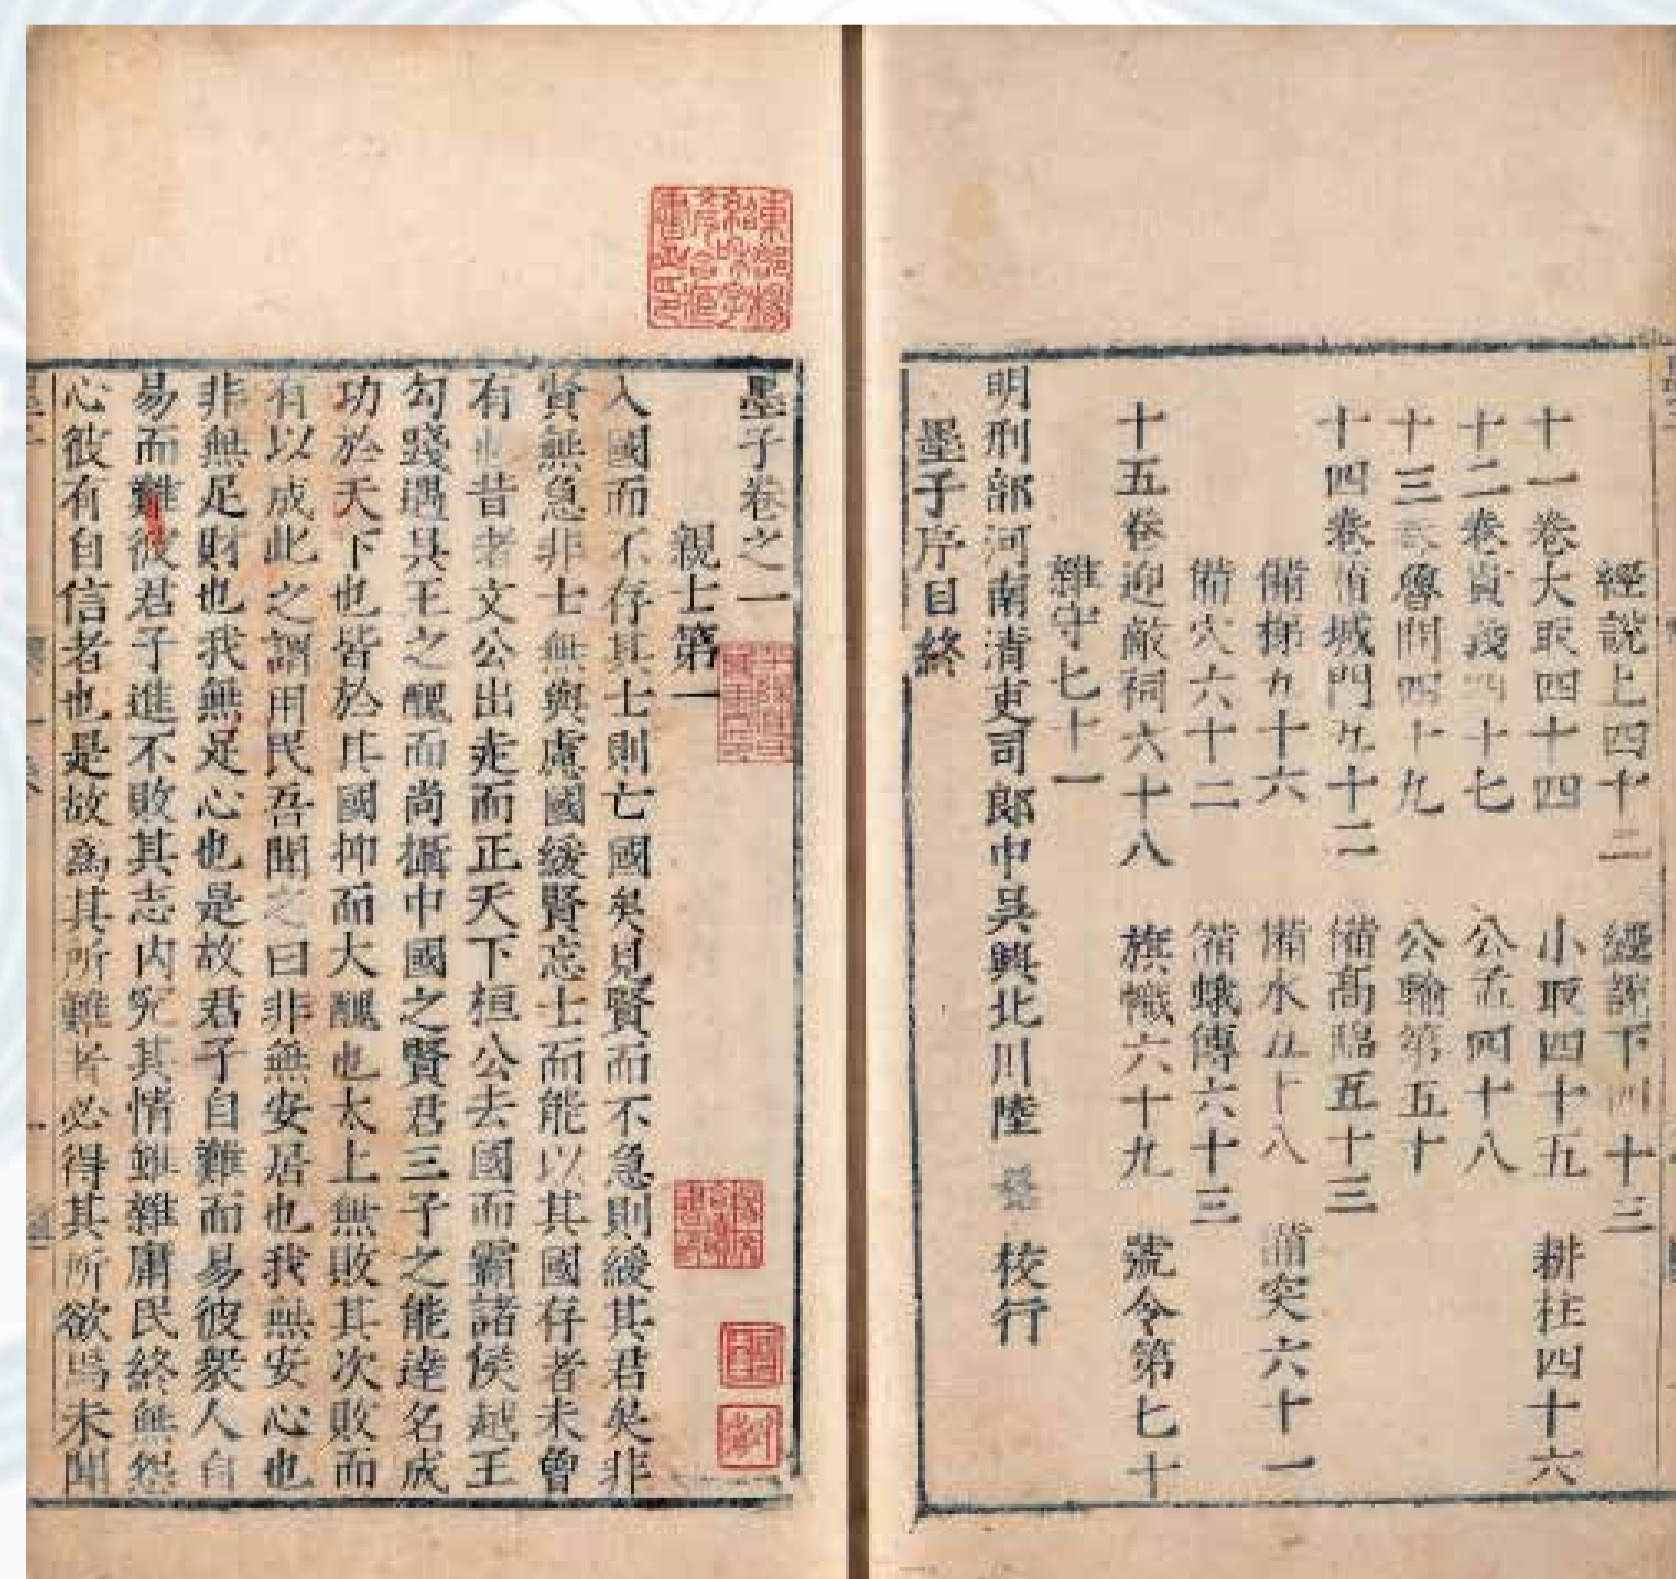 經說上四十二 經說下四十三
十一卷大取四十四 小取四十五 耕柱四十六
十二卷貴義四十七 公孟四十八
十三卷魯問四十九 公輸第五十
十四卷備城門五十二 備高臨五十三
備梯五十六 備水五十八 備突六十一
備穴六十二 備蛾傅六十三
十五卷迎敵祠六十八 旗幟六十九 號令第七十
雜守七十一
明刑部河南清吏司郎中吳興北川陸 校行
墨子序目終
墨子卷之一
親士第一
入國而不存其士則亡國矣見賢而不急則緩其君矣非
賢無急非士無與慮國緩賢忘士而能以其國存者未曾
有也昔者文公出走而正天下桓公去國而霸諸侯越王
勾踐遇吳王之醜而尚攝中國之賢君三子之能達名成
功於天下也皆於其國抑而大醜也太上無敗其次敗而
有以成此之謂用民吾聞之曰非無安居也我無安心也
非無足財也我無足心也是故君子自難而易彼衆人自
易而難彼君子進不敗其志內究其情雖雜庸民終無怨
心彼有自信者也是故為其所難者必得其所欲焉未聞